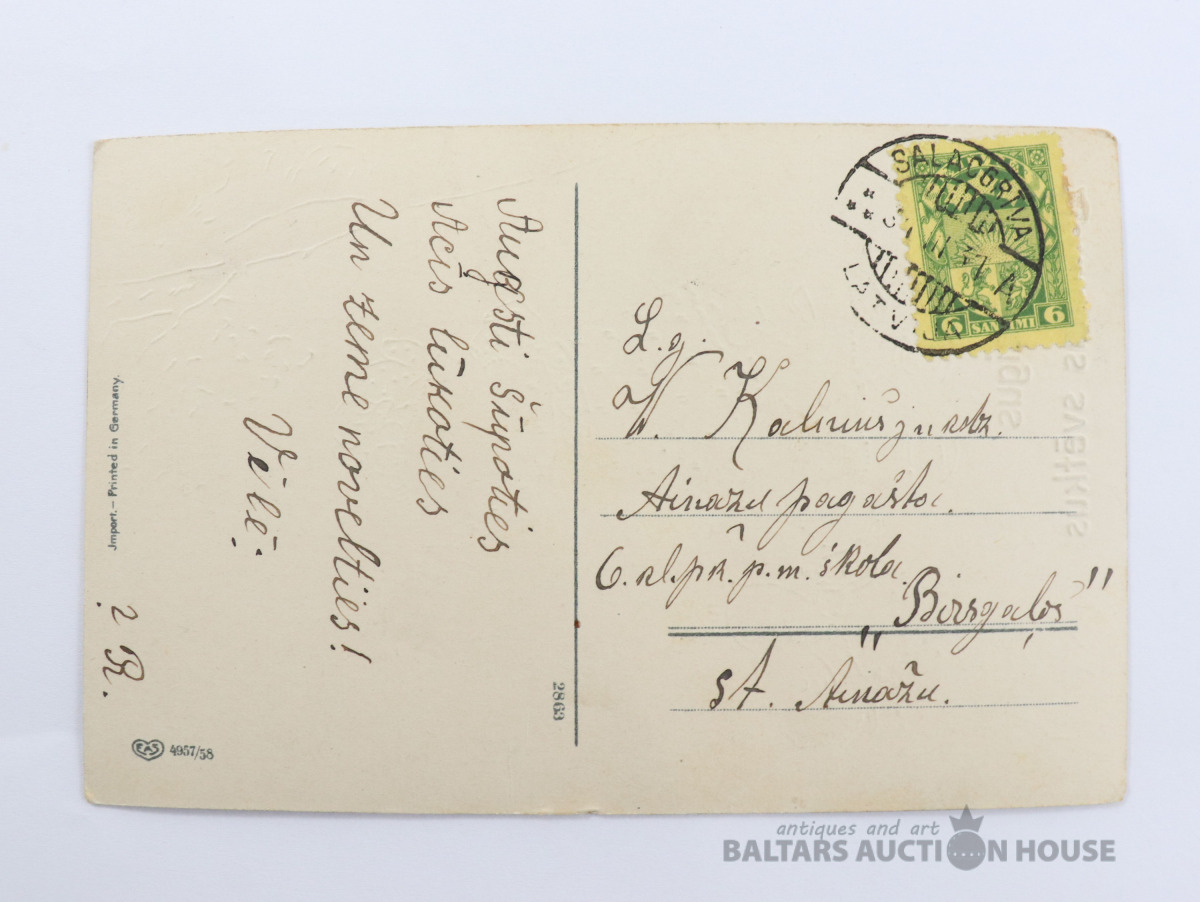 Augsti šūpoties
Acis lūkoties
Un zeme novelties!
Vēlē:
? R.
Import. – Printed in Germany.
EAS 4957/58
2863
SALACGRĪVA
LATVIJA
6 SANTIMI 6
L.g.
W. Kalniņ jnkdz.
Ainažu pagasta.
6. kl. pr. p. m. skola
"Birsgaļos"
st. Ainažu.
antiques and art
BALTARS AUCTION HOUSE